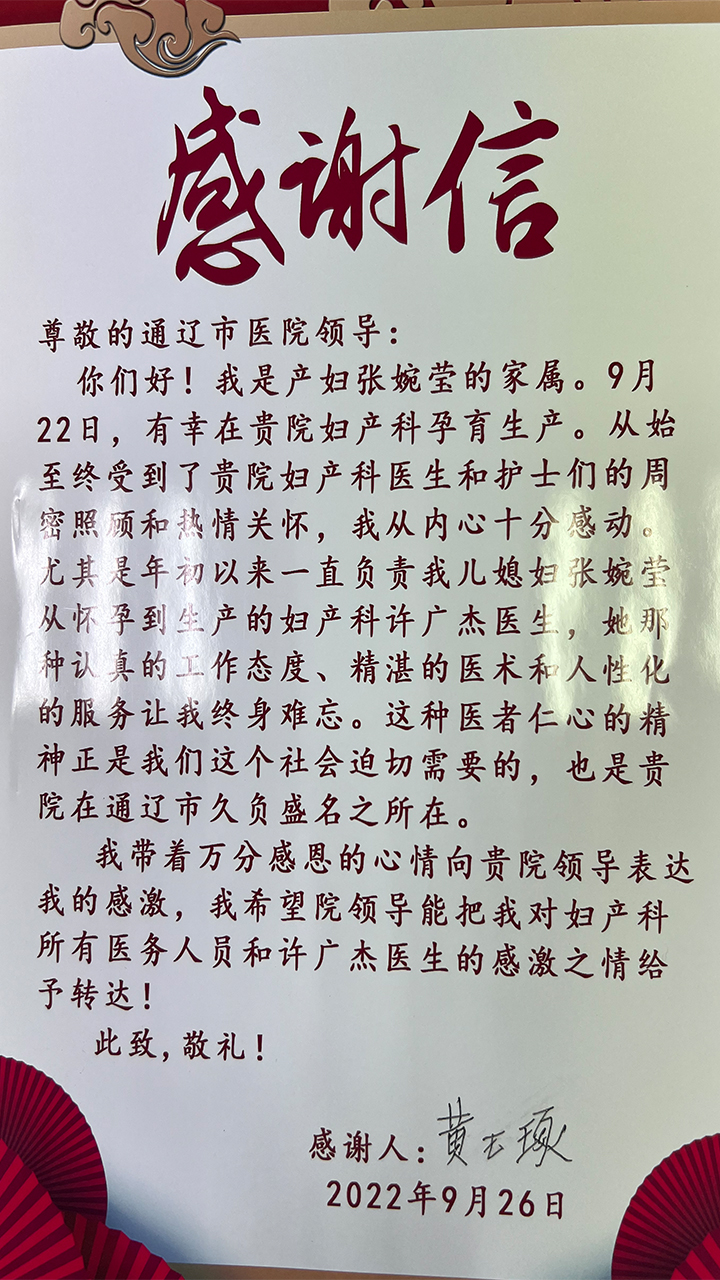 感谢信
尊敬的通辽市医院领导：
你们好！我是产妇张婉莹的家属。9月
22日，有幸在贵院妇产科孕育生产。从始
至终受到了贵院妇产科医生和护士们的周
密照顾和热情关怀，我从内心十分感动。
尤其是年初以来一直负责我儿媳妇张婉莹
从怀孕到生产的妇产科许广杰医生，她那
种认真的工作态度、精湛的医术和人性化
的服务让我终身难忘。这种医者仁心的精
神正是我们这个社会迫切需要的，也是贵
院在通辽市久负盛名之所在。
我带着万分感恩的心情向贵院领导表达
我的感激，我希望院领导能把我对妇产科
所有医务人员和许广杰医生的感激之情给
予转达！
此致，敬礼！
感谢人：黄
2022年9月26日